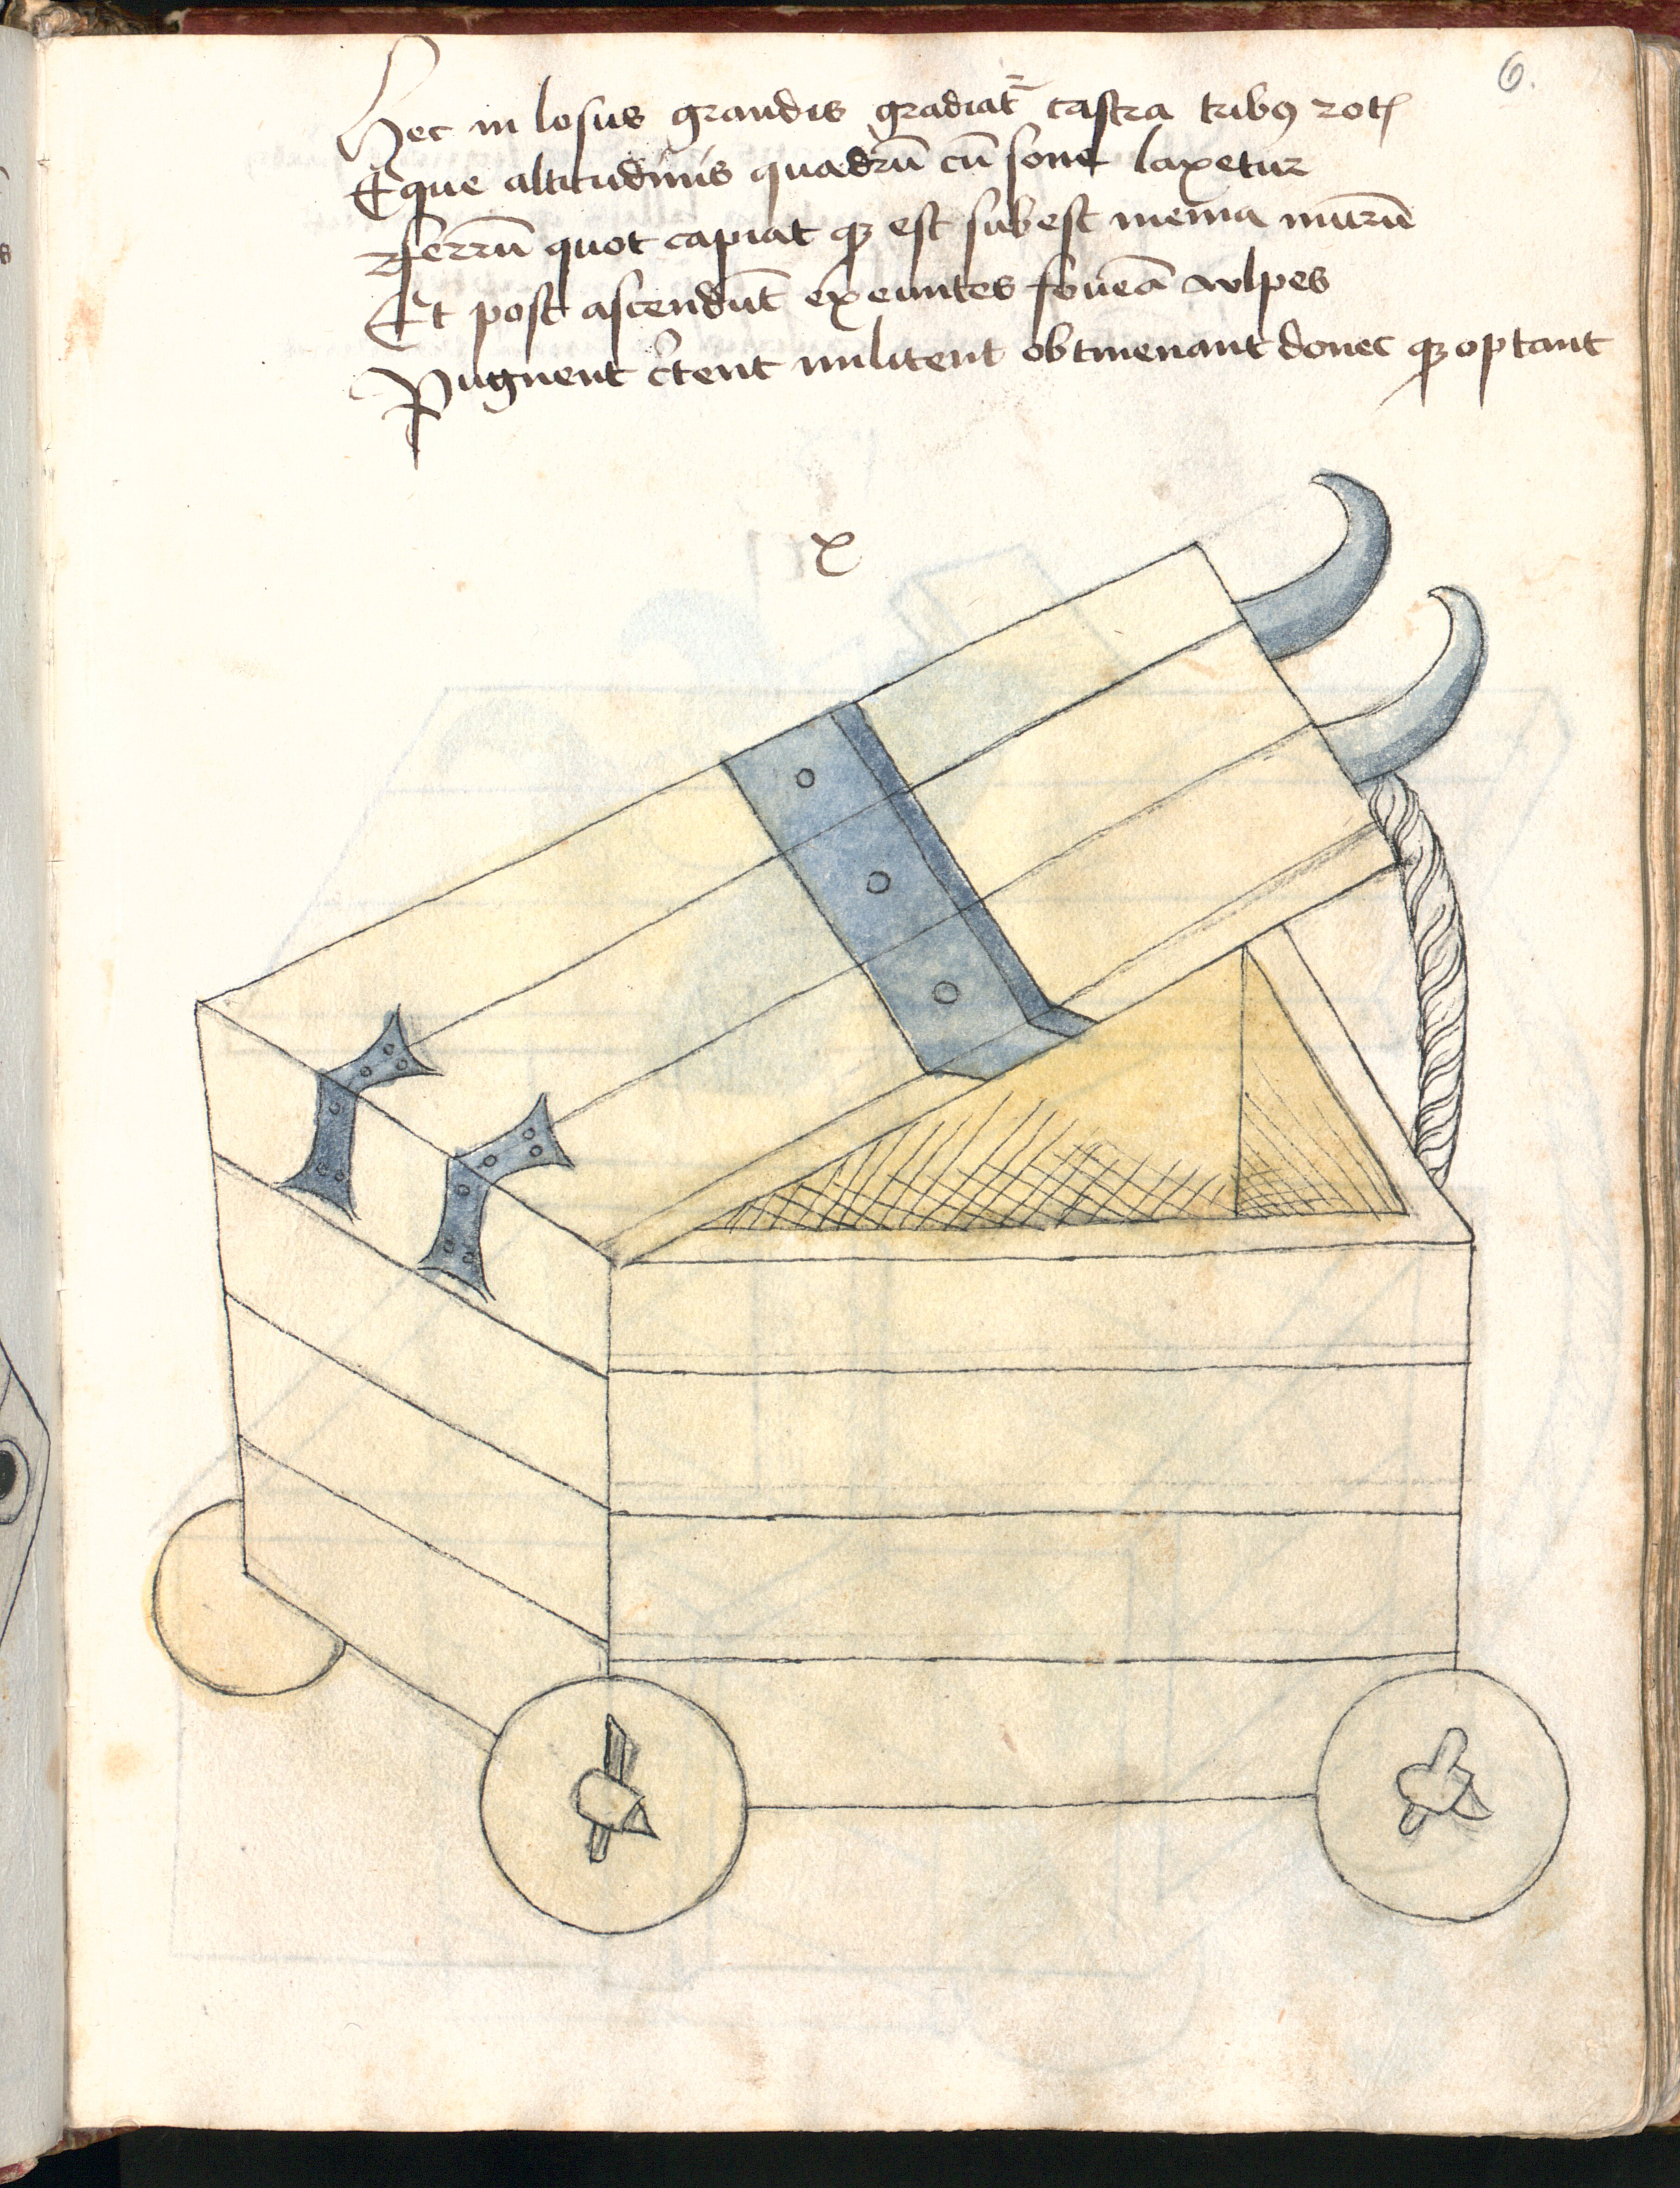 6.
Hec in losus grandis gradiat̄ castra tribꝯ rotꝭ
Eque altitudinis quadrū cū fone laxetur
ferrū quot capiat qꝫ est subest menia murū
Et post ascendūt exeuntes foueā wlpes
Pugnent c̄tent militent obtineant donec qꝫ optant
x